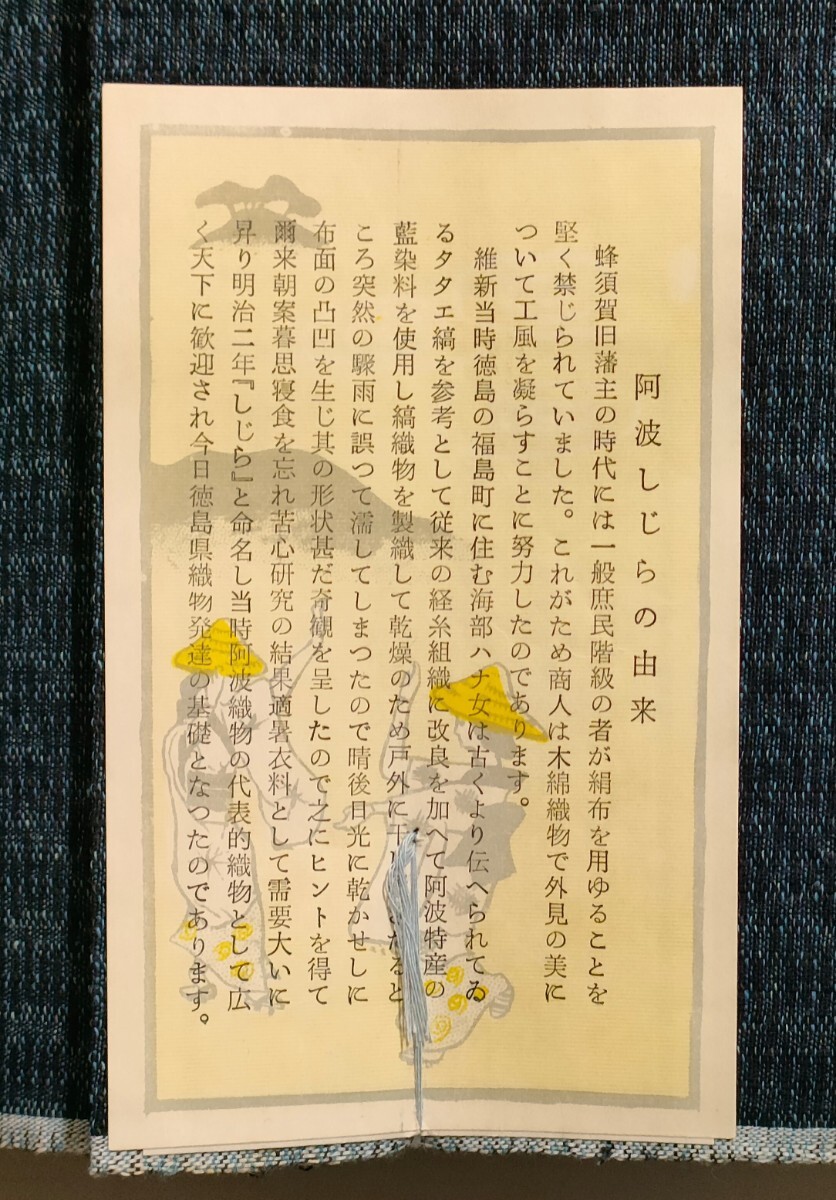 阿波しじらの由来
蜂須賀旧藩主の時代には一般庶民階級の者が絹布を用ゆることを
堅く禁じられていました。これがため商人は木綿織物で外見の美に
ついて工風を凝らすことに努力したのであります。
維新当時徳島の福島町に住む海部ハナ女は古くより伝へられてゐ
るタタエ縞を参考として従来の経糸組織に改良を加へて阿波特産の
藍染料を使用し縞織物を製織して乾燥のため戸外に干たると
ころ突然の驟雨に誤つて濡してしまつたので晴後日光に乾かせしに
布面の凸凹を生じ其の形状甚だ奇観を呈したので之にヒントを得て
爾来朝案暮思寝食を忘れ苦心研究の結果適暑衣料として需要大いに
昇り明治二年『しじら』と命名し当時阿波織物の代表的織物として広
く天下に歓迎され今日徳島県織物発達の基礎となつたのであります。